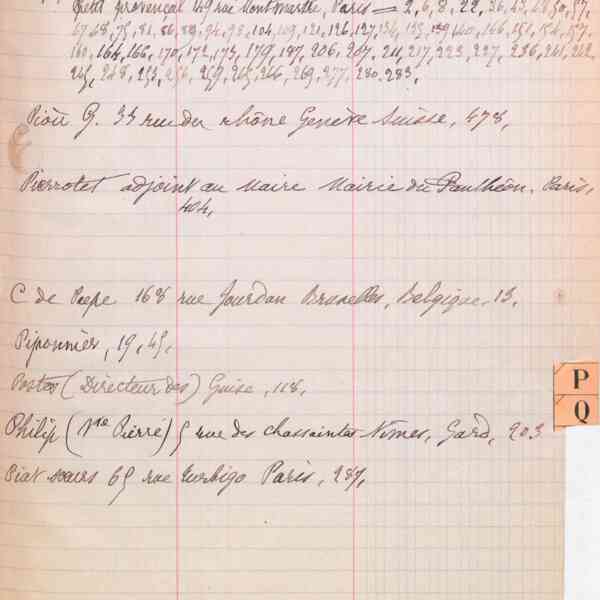 Petit provençal 49 rue Montmartre, Paris — 2, 6, 8, 22, 36, 43,
67, 68, 75, 81, 86, 89, 94, 98, 104, 109, 121, 126, 127, 134,
160, 164, 166, 170, 172, 173, 179, 187, 206, 207, 211, 217, 223, 227, 236, 241, 242
245, 248, 253, 256, 259, 265, 266, 269, 277, 280, 283,
Pioü G. 33 rue du rhône Genève Suisse, 478,
Pierrotet adjoint au Maire Mairie du Panthéon, Paris,
404,
C de Paepe 168 rue Jourdan Bruxelles, Belgique, 13,
Piponnier, 19, 45,
Postes (Directeur des) Guise, 118,
Philip (Vve Pierre) 5 rue des chassaintes Nimes, Gard, 203
Piat sœurs 65 rue Turbigo Paris, 287,
P
Q